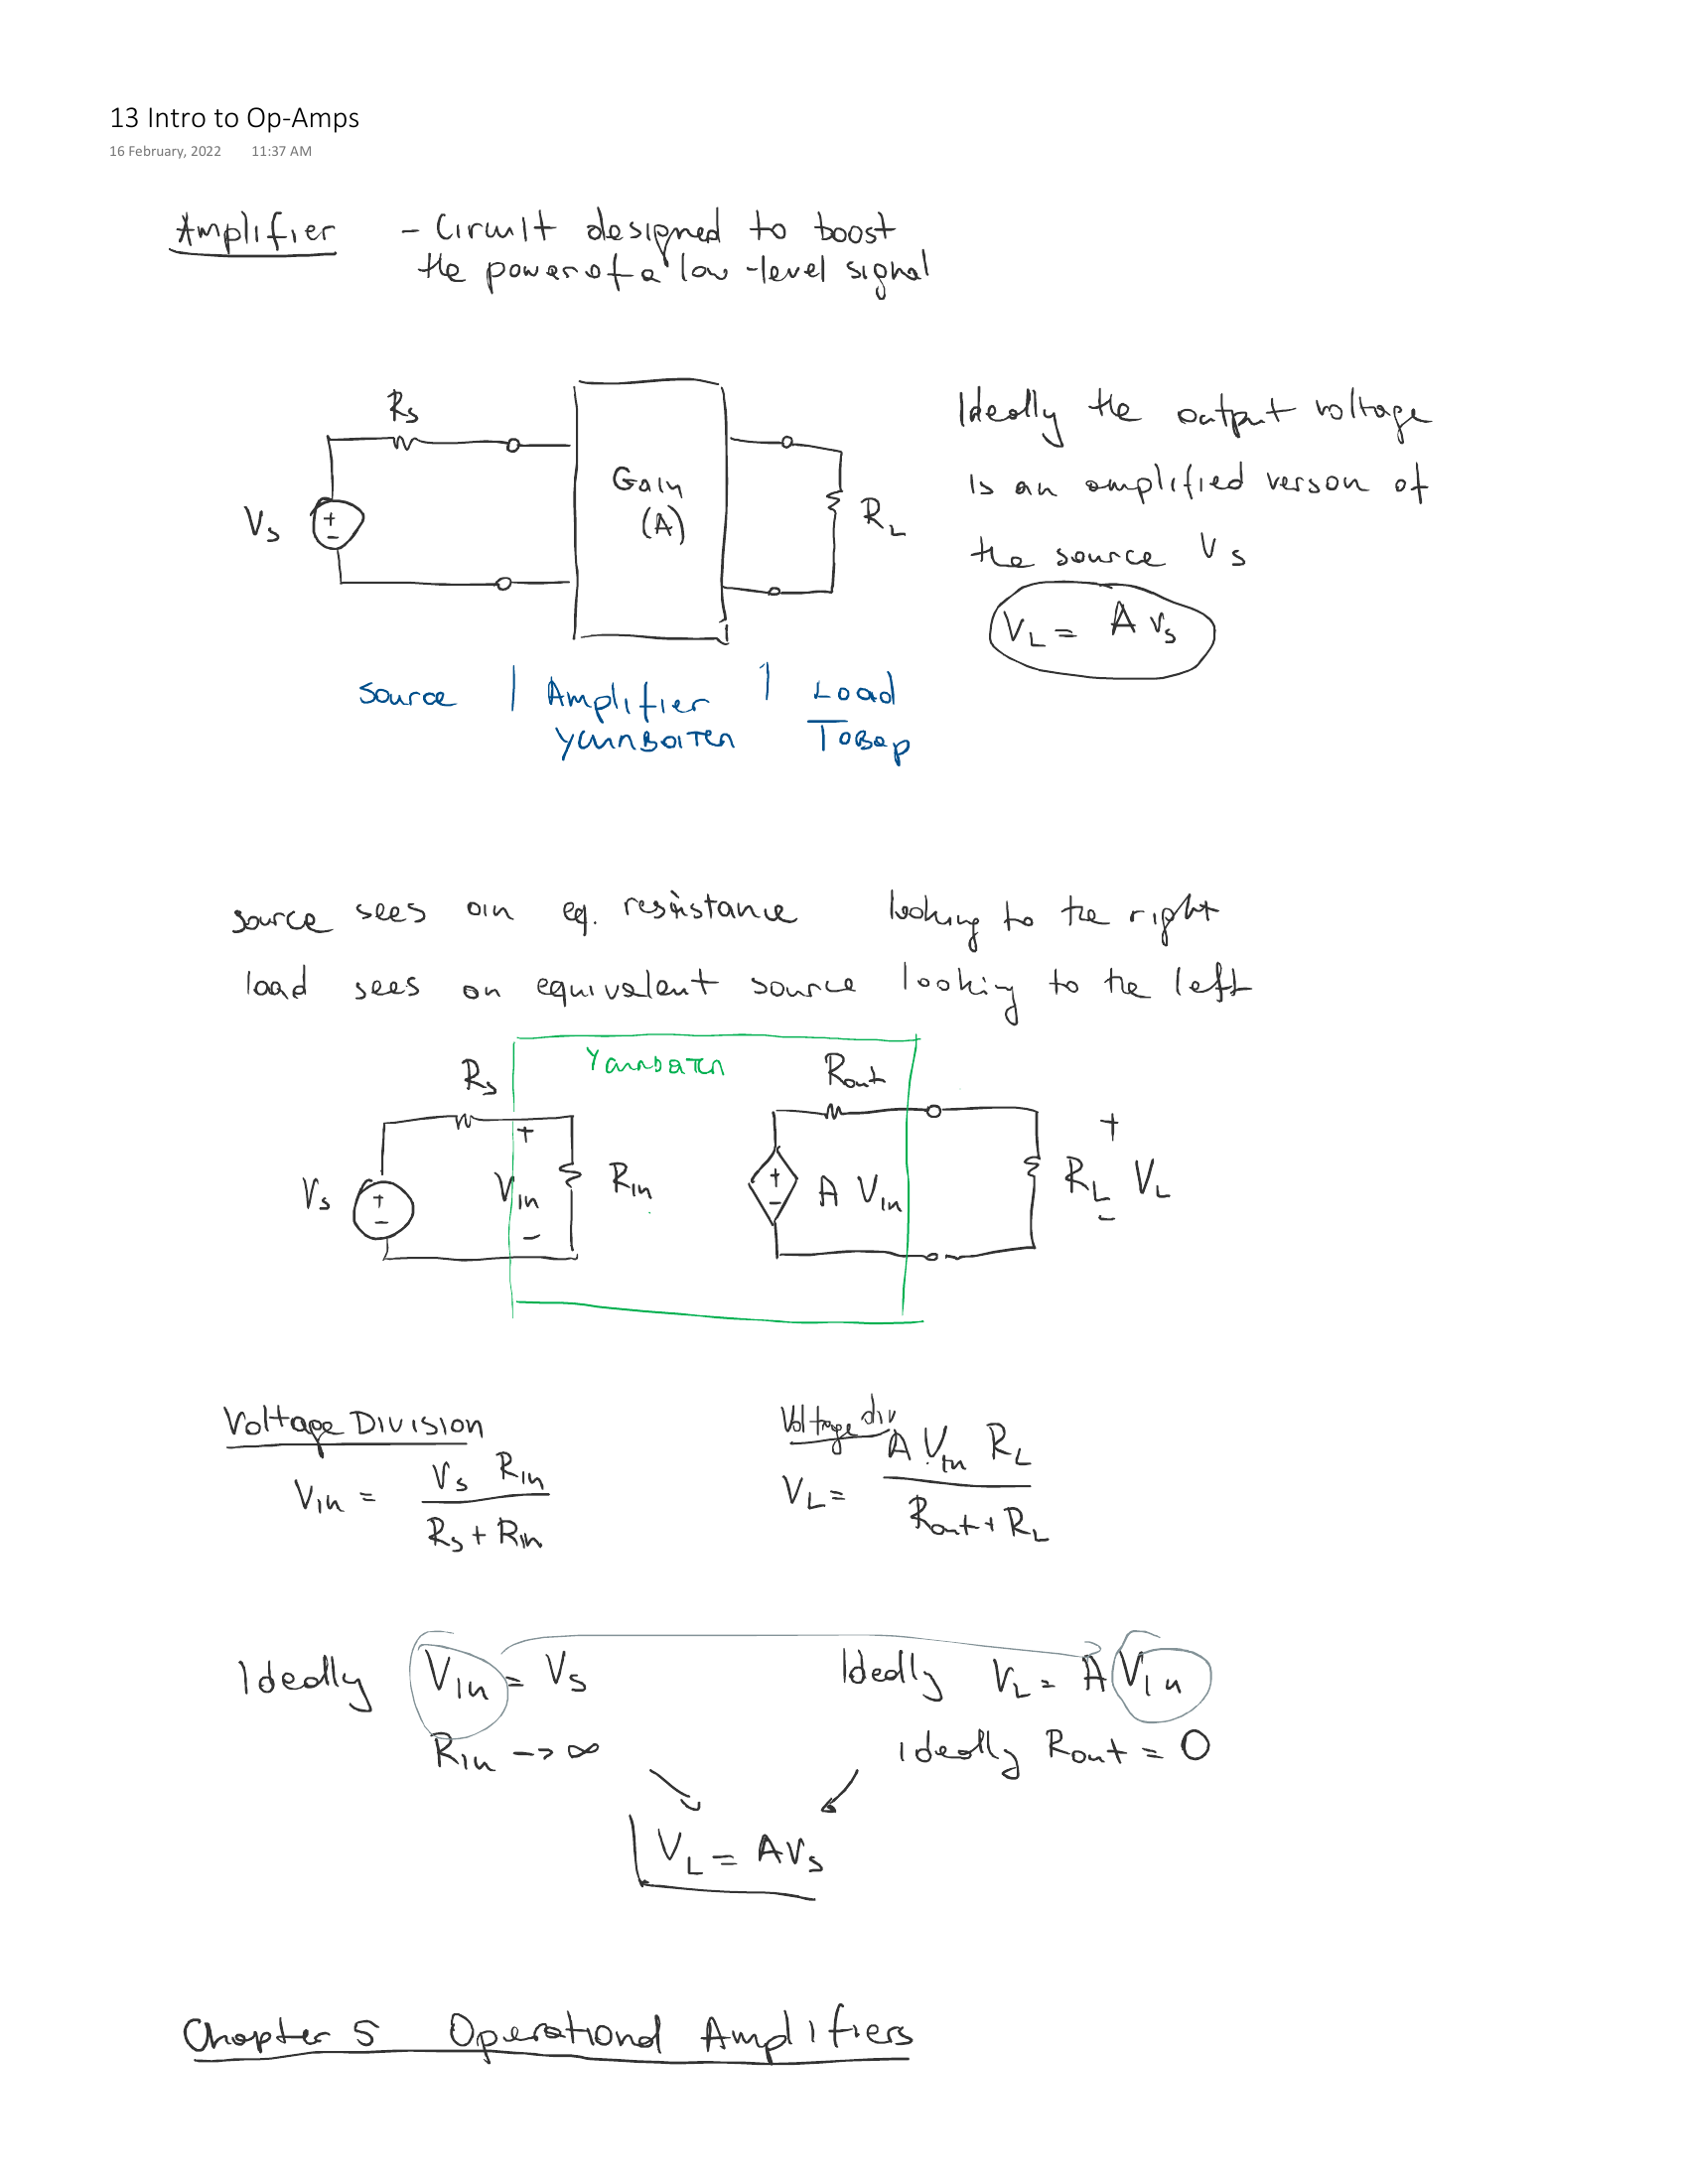 13 Intro to Op-Amps
16 February, 2022 11:37 AM
Amplifier - Circuit designed to boost
the power of a low-level signal
Rs
Gain
(A)
Vs + -
RL
Ideally the output voltage
is an amplified verson of
the source Vs
VL = A Vs
Source | Amplifier | Load
Товар
source sees an eq. resistance looking to the right
load sees an equivalent source looking to the left
Rs
Rout
Vs + -
+ Vin -
Rin
+ - A Vin
RL + VL -
Voltage Division
Vin = Vs Rin / Rs + Rin
Voltage div
VL = A Vin RL / Rout + RL
Ideally Vin = Vs
Ideally VL = A Vin
Rin -> ∞
Ideally Rout = 0
VL = AVs
Chapter 5 Operational Amplifiers